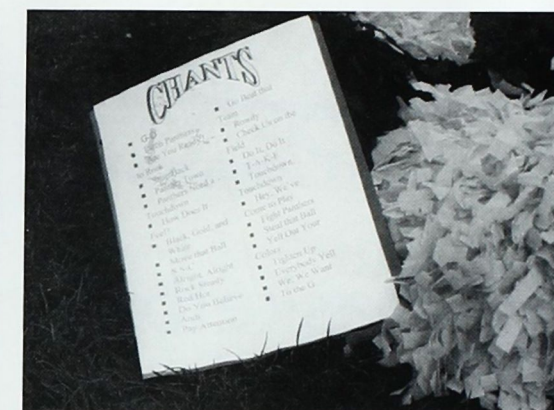 CHANTS
Panthers
Are You Ready
to Rock
Push Back
Panthers Need a
Touchdown
How Does It
Feel?
Black, Gold, and
White
Move that Ball
Alright, Alright
Rock Steady
Red Hot
Do You Believe
Go, Beat that
Team
Rowdy
Check Us on the
Field
Do It, Do It
Touchdown,
Touchdown
Hey, We've
Come to Play
Fight Panthers
Steal that Ball
Yell Out Your
Colors
Tighten Up
Everybody Yell
We, We Want
To the G.